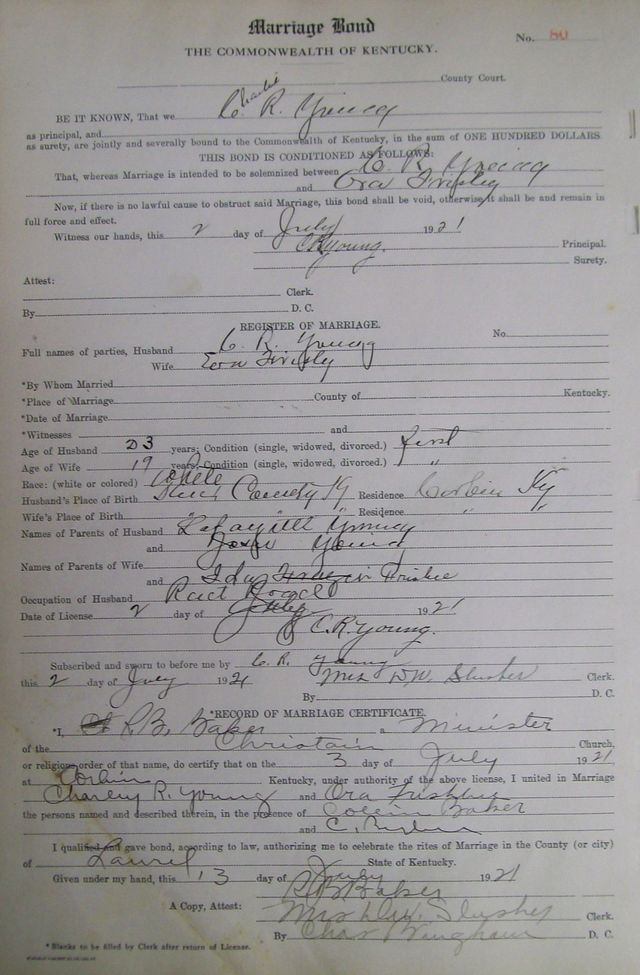 Marriage Bond
No. 80
THE COMMONWEALTH OF KENTUCKY.
County Court.
Charlie
BE IT KNOWN, That we C. R. Young
as principal, and
as surety, are jointly and severally bound to the Commonwealth of Kentucky, in the sum of ONE HUNDRED DOLLARS
THIS BOND IS CONDITIONED AS FOLLOWS:
That, whereas Marriage is intended to be solemnized between C. R. Young
and Ora
Now, if there is no lawful cause to obstruct said Marriage, this bond shall be void, otherwise it shall be and remain in
full force and effect.
Witness our hands, this 2 day of July 1921
C R Young. Principal.
Surety.
Attest:
Clerk.
By D. C.
REGISTER OF MARRIAGE.
No.
Full names of parties, Husband C. R. Young
Wife
*By Whom Married
*Place of Marriage County of Kentucky.
*Date of Marriage
*Witnesses and
Age of Husband 23 years; Condition (single, widowed, divorced.) first
Age of Wife 19 years; Condition (single, widowed, divorced.) "
Race: (white or colored) White
Husband's Place of Birth County Ky Residence Corbin Ky
Wife's Place of Birth " " Residence " "
Names of Parents of Husband Lafayett Young
and Young
Names of Parents of Wife
and Ida
Occupation of Husband
Date of License 2 day of July 1921
C.R. Young.
Subscribed and sworn to before me by C. R. Young
this 2 day of July 1921 Mrs D.W. Slusher Clerk.
By D. C.
*RECORD OF MARRIAGE CERTIFICATE.
*I, R.B. Baker a Minister
of the Christain Church,
or religious order of that name, do certify that on the 3 day of July 1921
at Corbin Kentucky, under authority of the above license, I united in Marriage
Charley R. Young and Ora
the persons named and described therein, in the presence of Baker
and C.
I qualified and gave bond, according to law, authorizing me to celebrate the rites of Marriage in the County (or city)
of Laurel State of Kentucky.
Given under my hand, this 13 day of July 1921
R B Baker
A Copy, Attest: Mrs D.W. Slusher Clerk.
By Chas Bingham D. C.
*Blanks to be filled by Clerk after return of License.